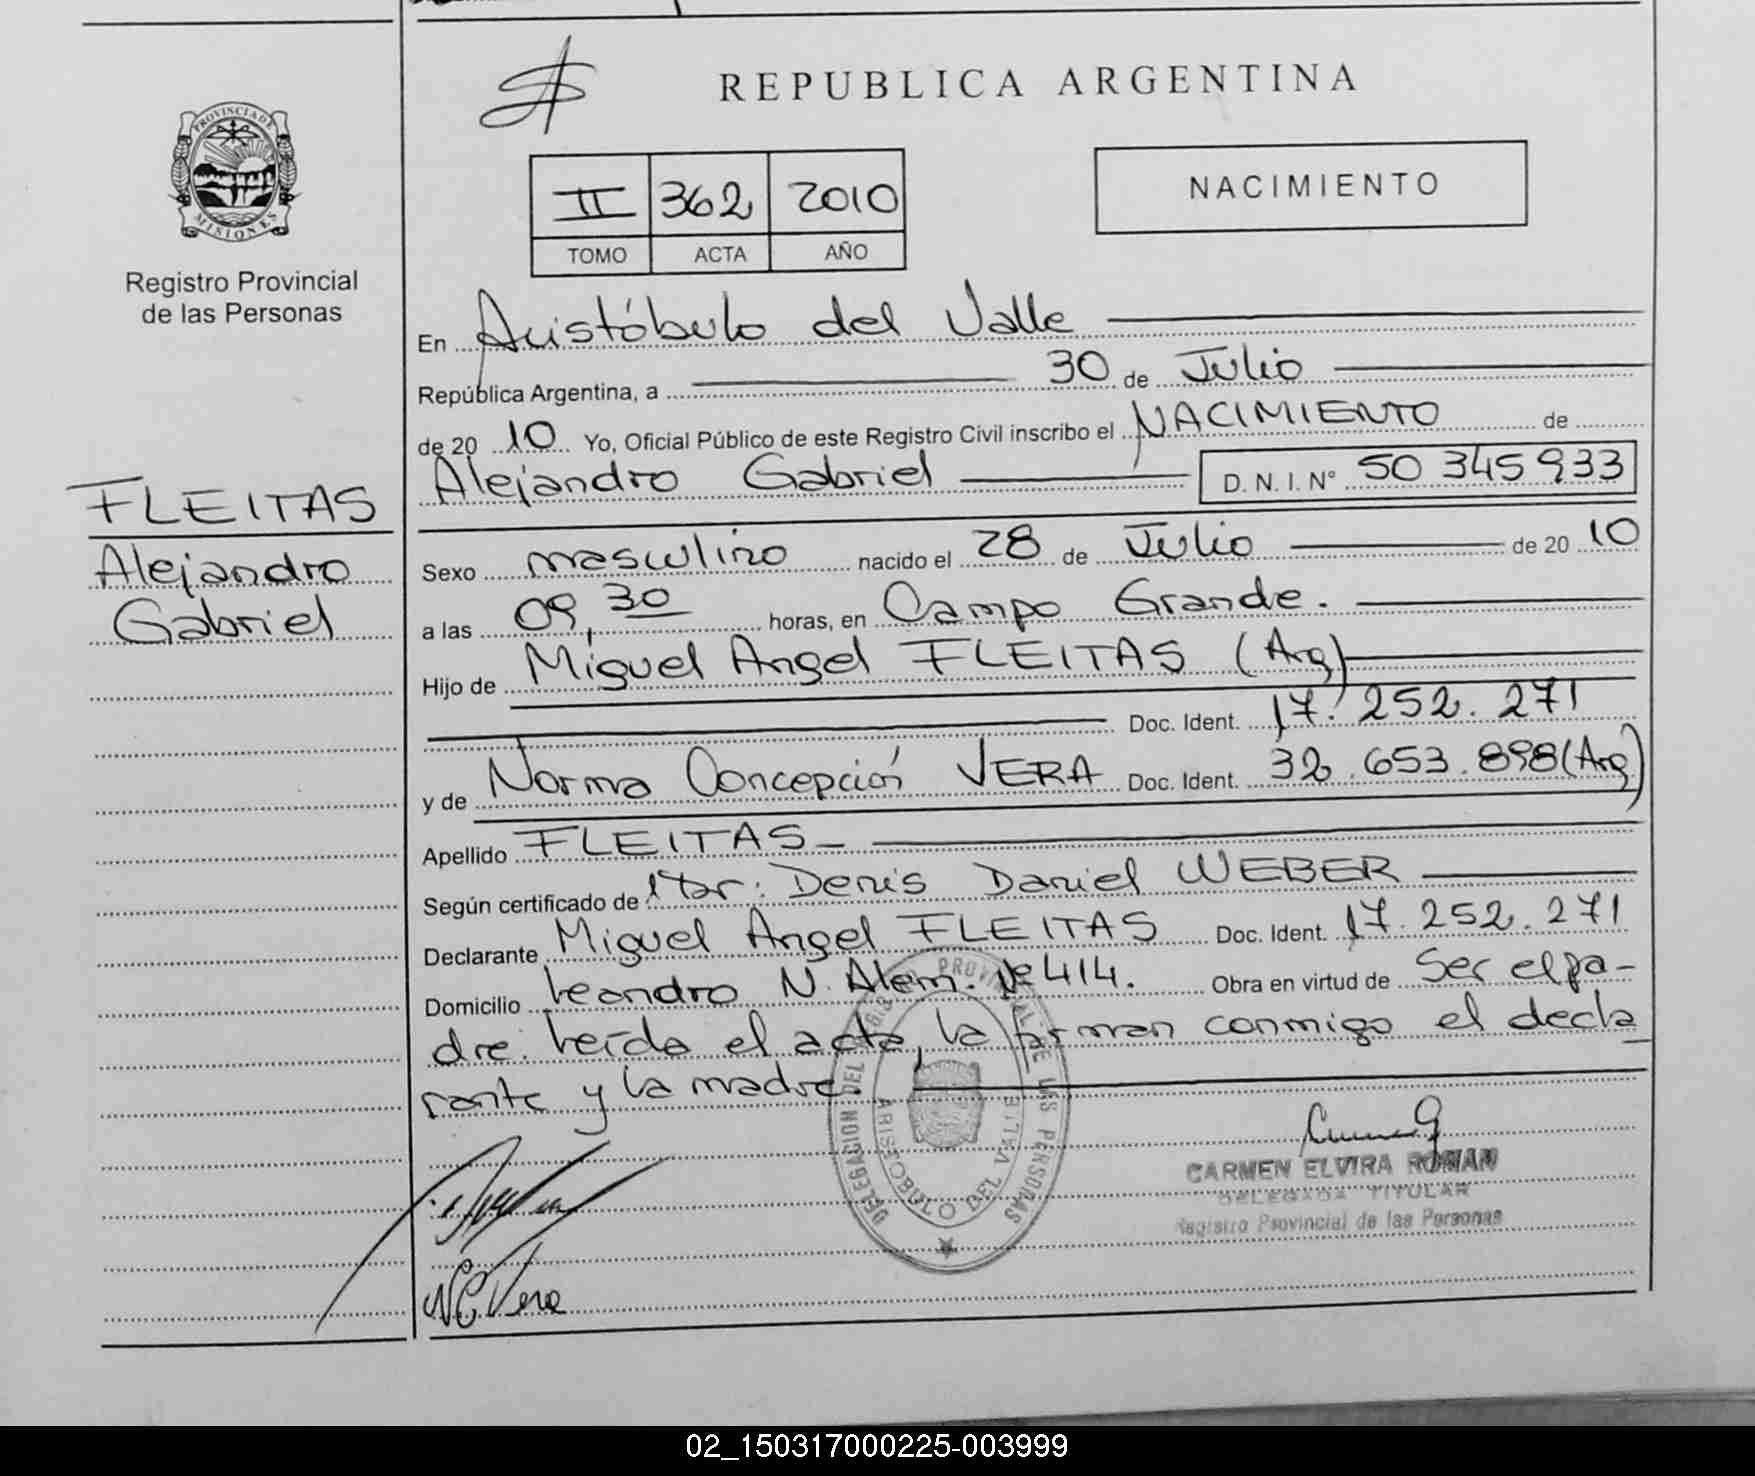 REPUBLICA ARGENTINA
PROVINCIA DE MISIONES
Registro Provincial
de las Personas
II 362 2010
TOMO ACTA AÑO
NACIMIENTO
En Aristóbulo del Valle
República Argentina, a 30 de Julio
de 20 10 Yo, Oficial Público de este Registro Civil inscribo el NACIMIENTO de
Alejandro Gabriel D.N.I. Nº 50 345 933
FLEITAS
Alejandro
Gabriel
Sexo masculino nacido el 28 de Julio de 20 10
a las 09,30 horas, en Campo Grande.
Hijo de Miguel Angel FLEITAS (Arg)
Doc. Ident. 17.252.271
y de Norma Concepción VERA Doc. Ident. 32.653.898 (Arg)
Apellido FLEITAS
Según certificado de Denis Daniel WEBER
Declarante Miguel Angel FLEITAS Doc. Ident. 17.252.271
Domicilio Leandro N. Alem. Nº 414. Obra en virtud de Ser el pa-
dre. Leída el acta, la firman conmigo el decla
rante y la madre.
DELEGACION DEL REGISTRO PROVINCIAL DE LAS PERSONAS
ARISTOBULO DEL VALLE
CARMEN ELVIRA ROMAN
DELEGADA TITULAR
Registro Provincial de las Personas
NC Vera
02_150317000225-003999